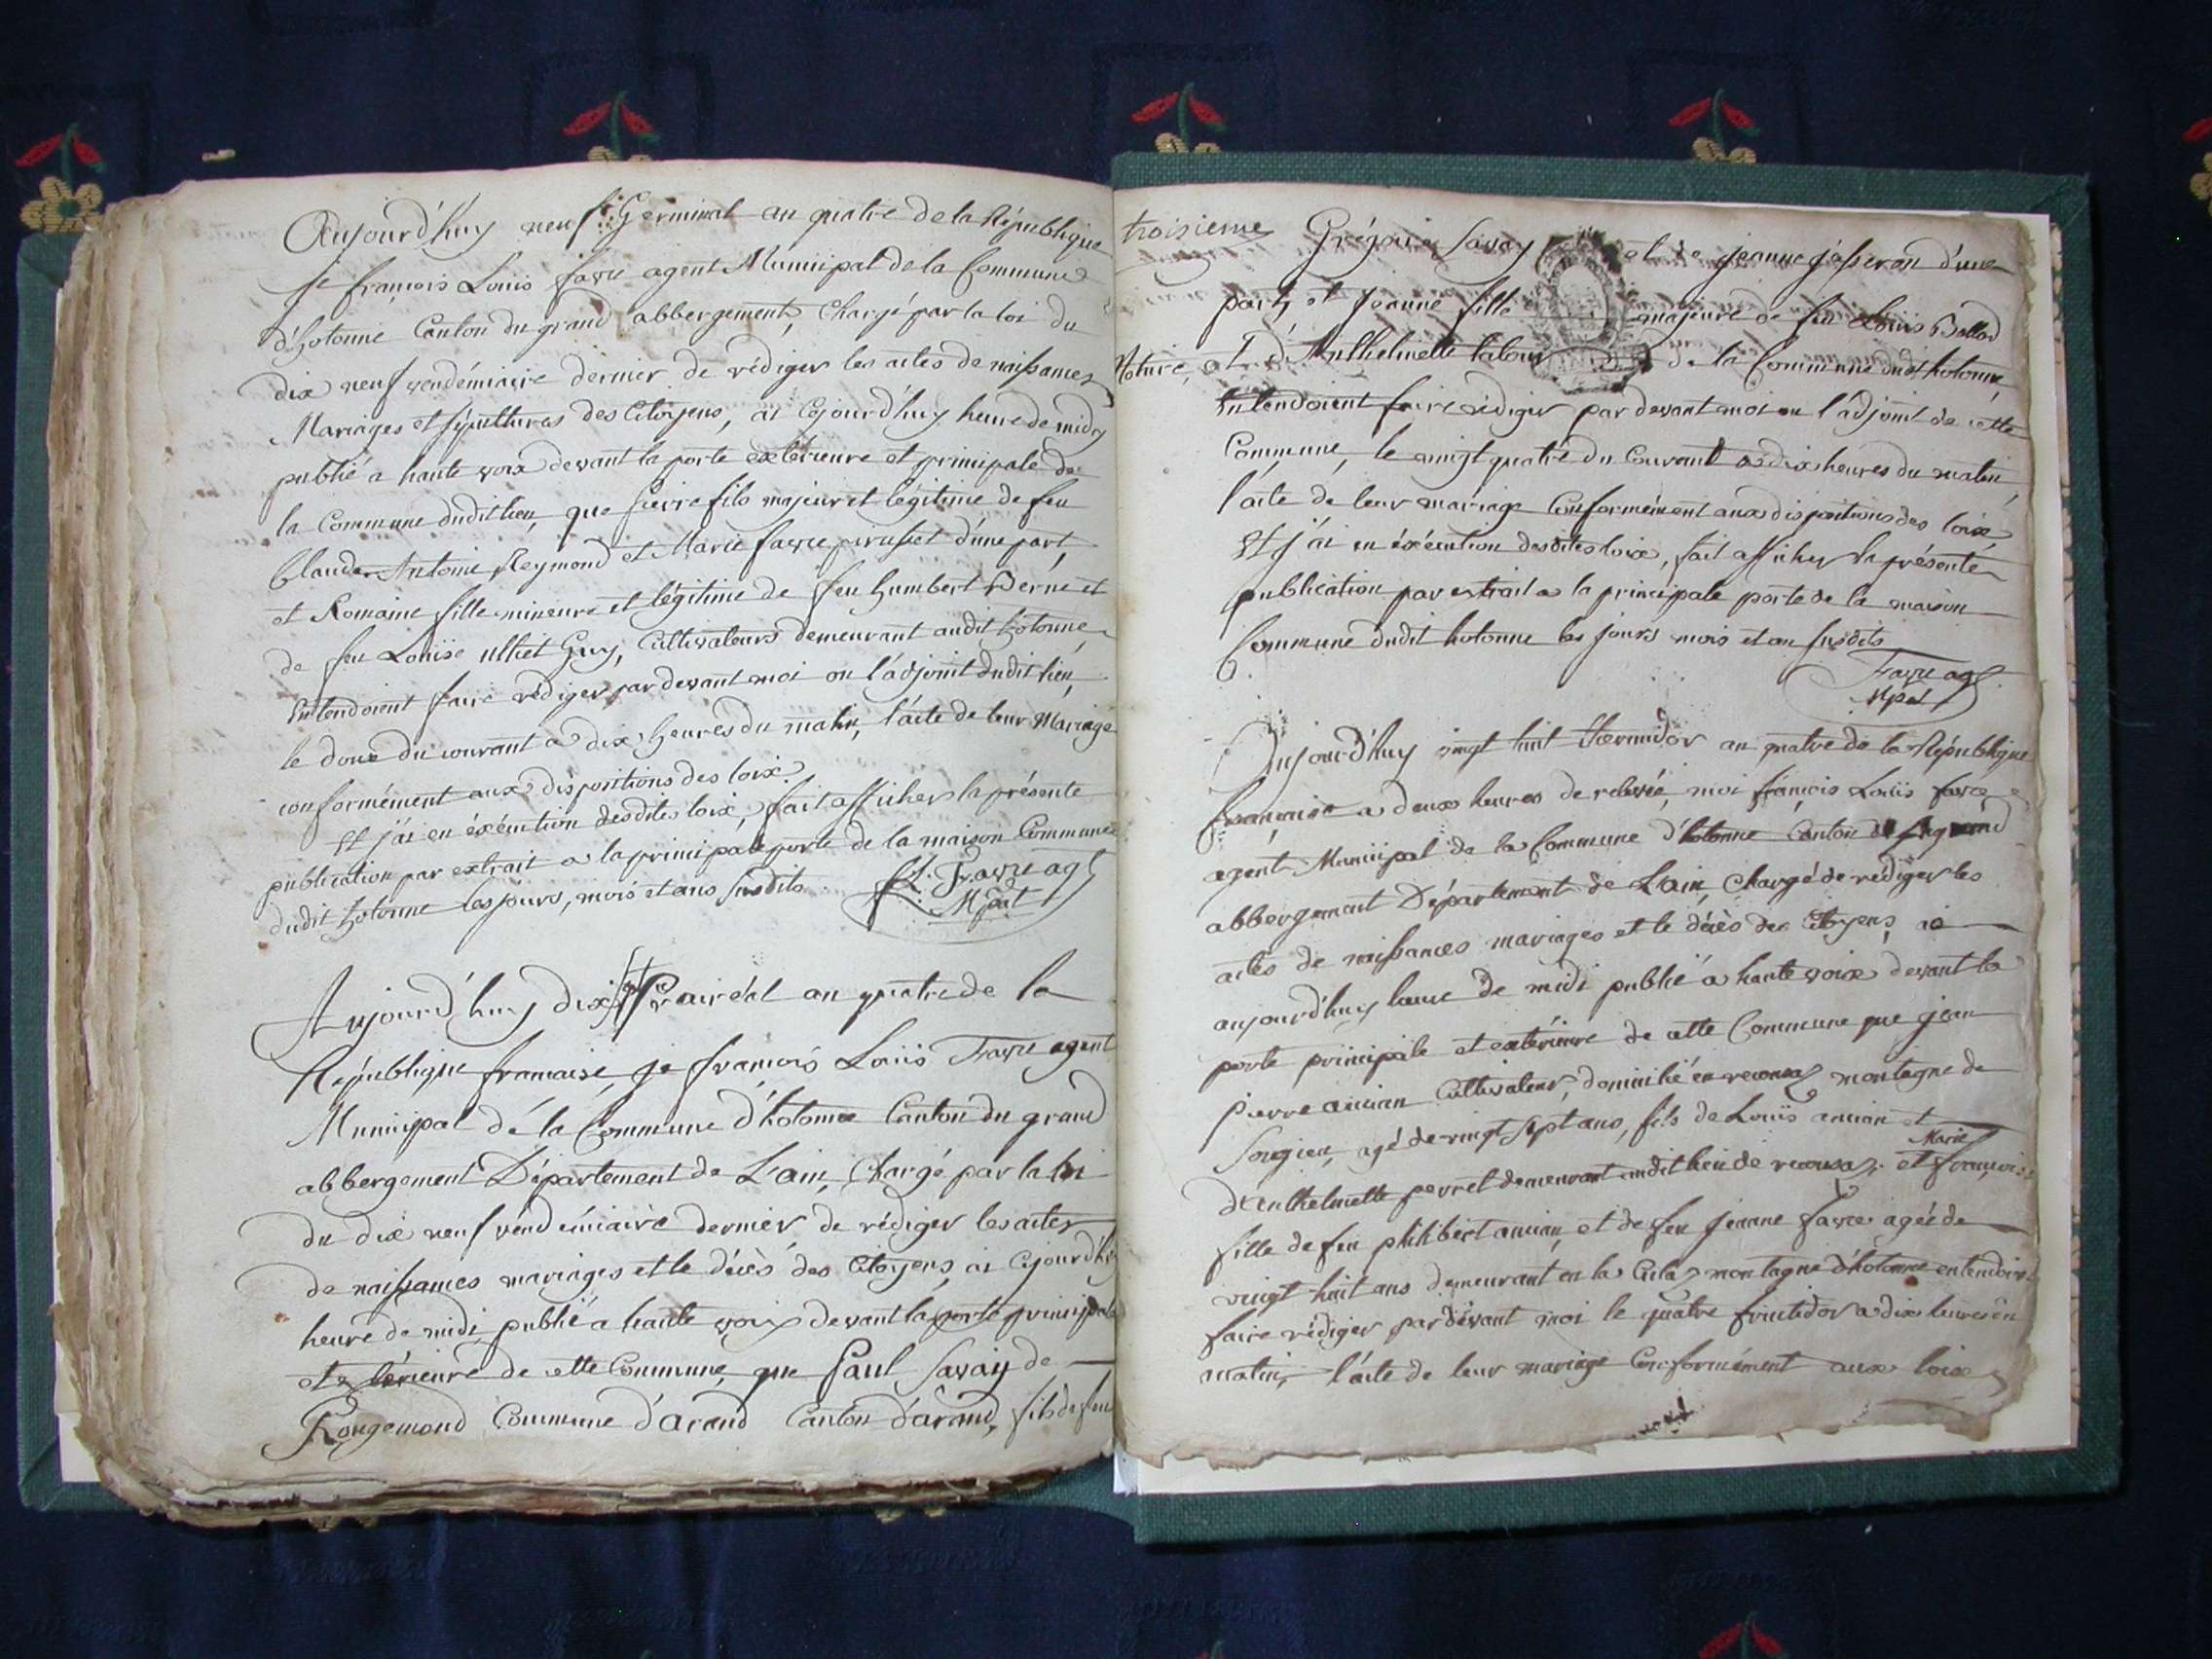 Aujourd'huy neuf Germinal an quatre de la République
je françois Louis favre agent Municipal de la Commune
d'hotonne Canton du grand abbergement, Chargé par la loi du
dix neuf vendémiaire dernier de rédiger les actes de naissances
Mariages et sépultures des Citoyens, ai Cejourd'huy heure de midy
publié a haute voix devant la porte extérieure et principale de
la Commune dudit lieu, que pierre fils majeur et légitime de feu
Claude Antoine Reymond et Marie favre d'une part,
et Romaine fille mineure et légitime de feu humbert Berne et
de feu Louise Guy, Cultivateurs demeurant audit hotonne,
Entendoient faire rédiger par devant moi ou l'adjoint dudit lieu,
le douze du courant a dix heures du matin, l'acte de leur Mariage
conformément aux dispositions des loix.
Et j'ai en éxécution desdites loix, fait afficher la présente
publication par extrait a la principale porte de la maison Commune
dudit hotonne les jours, mois et ans susdits
fL. Favre agt
Mpal
Aujourd'huy dix Prairéal an quatre de la
République francaise, je francois Louis Favre agent
Municipal de la Commune d'hotonne Canton du grand
abbergement Département de L'ain, Chargé par la loi
du dix neuf vendémiaire dernier de rédiger les actes
de naissances mariages et le décès des Citoyens, ai Cejourd'huy
heure de midi publié a haute voix devant la porte principale
et extérieure de cette Commune, que Paul Savay de
Rougemond Commune d'arand Canton d'arand, fils de feu
troisieme
Grégoire Savay et de jeanne jasseron d'une
part, et jeanne fille majeure de feu Louis Ballad
Notaire, et d'Anthelmette de la Commune dudit hotonne
Entendoient faire rédiger par devant moi ou l'adjoint de cette
Commune, le vingt quatre du Courant a dix heures du matin
l'acte de leur mariage Conformément aux dispositions des loix,
Et j'ai en éxécution desdites loix, fait afficher la présente
publication par extrait a la principale porte de la maison
Commune dudit hotonne les jours mois et an susdits
Favre agt
Mpal
Aujourd'huy vingt huit thermidor an quatre de la République
francaise a deux heures de relevée, moi françois Louis favre
agent Municipal de la Commune d'hotonne Canton du grand
abbergement Département de L'ain, Chargé de rédiger les
actes de naissances mariages et le décès des Citoyens, ai
aujourd'huy heure de midi publié a haute voix devant la
porte principale et extérieure de cette Commune que jean
pierre ancian Cultivateur, domicilié en montagne de
Songieu, agé de vingt sept ans, fils de Louis ancian et
d'anthelmette perret demeurant audit lieu de et françoise
Marie
fille de feu philibert ancian, et de feu jeanne favre agée de
vingt huit ans demeurant en la montagne d'hotonne entendoient
faire rédiger par devant moi le quatre fructidor a dix heures du
matin, l'acte de leur mariage Conformément aux loix